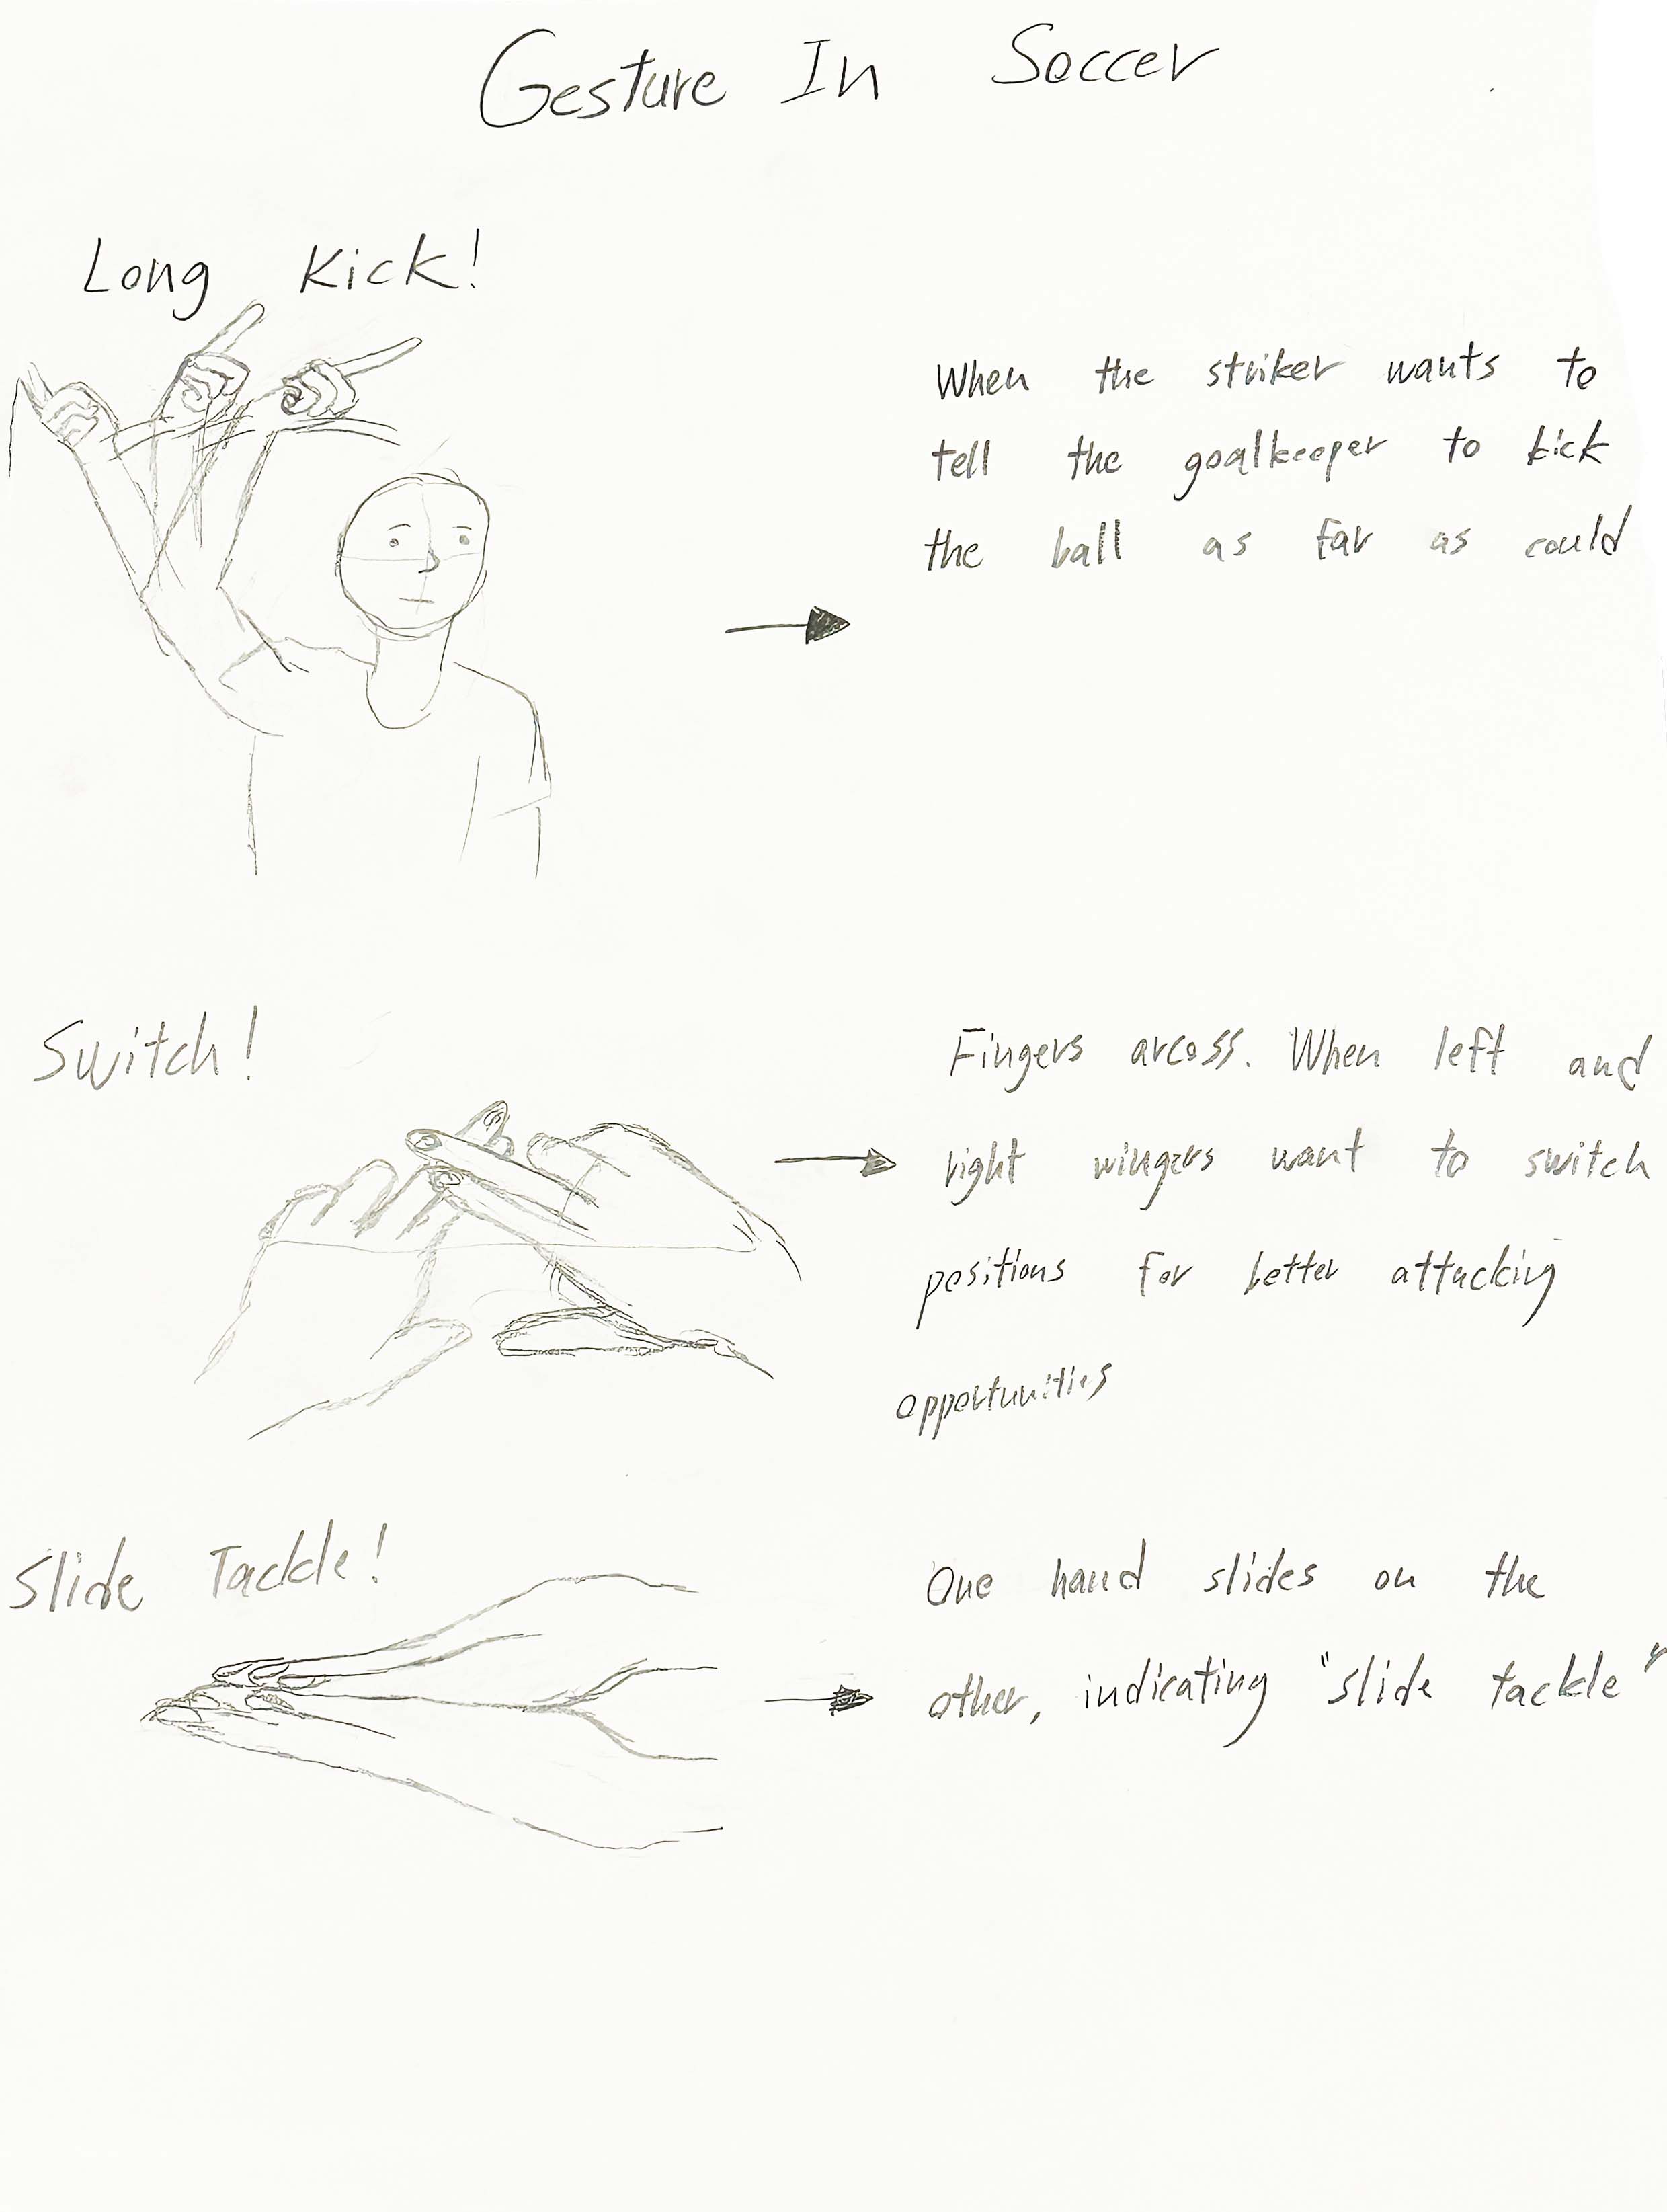 Gesture In Soccer
Long Kick!
When the striker wants to
tell the goalkeeper to kick
the ball as far as could
Switch!
Fingers arcoss. When left and
right wingers want to switch
positions for better attacking
opportunities
Slide Tackle!
One hand slides on the
other, indicating "slide tackle"